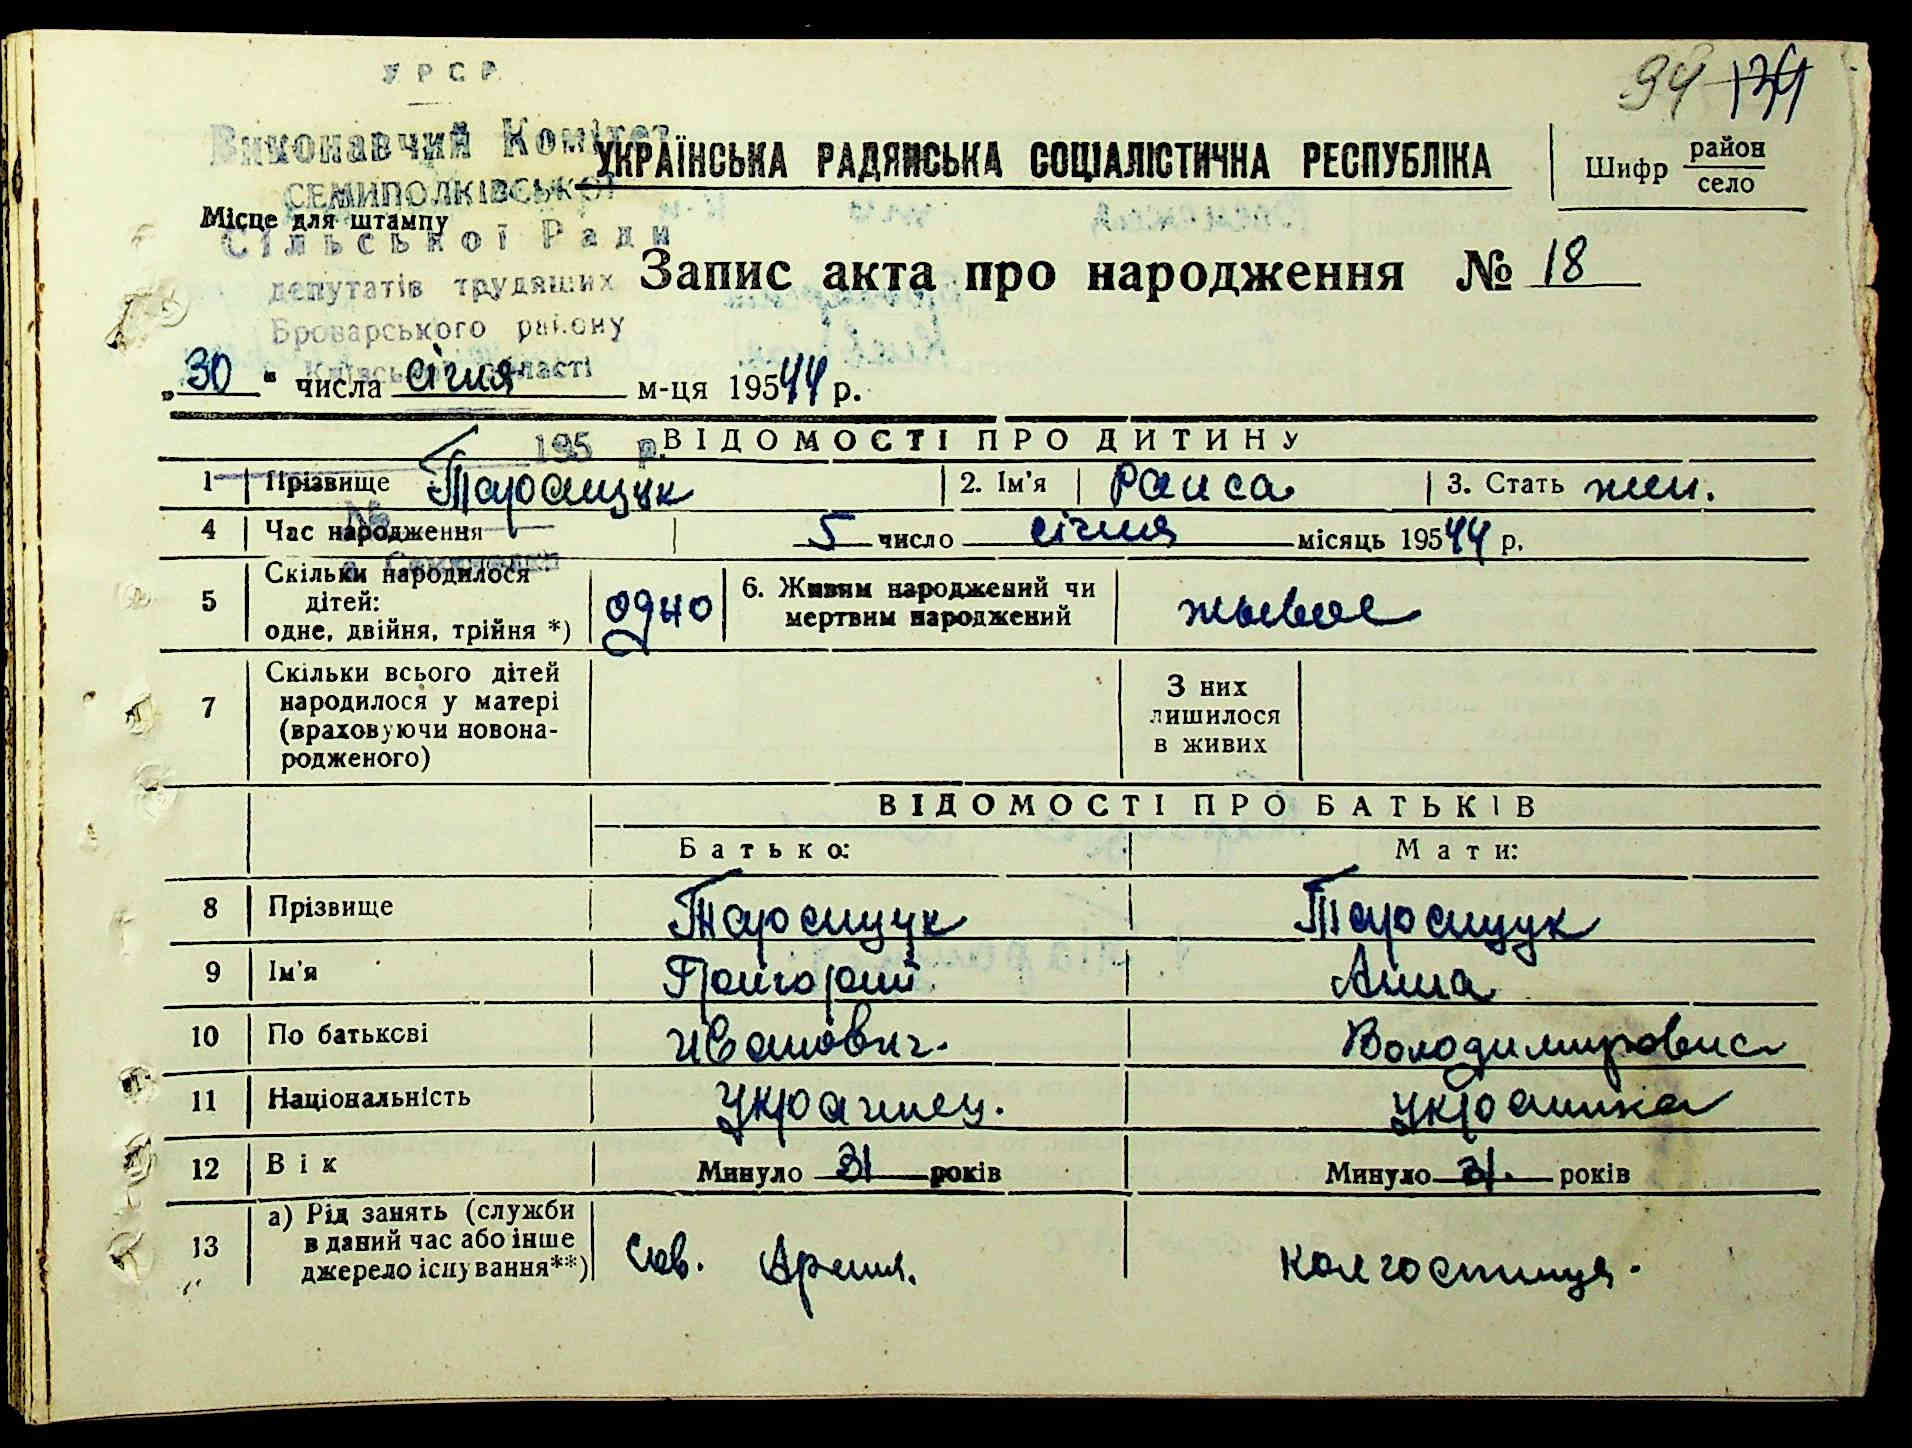 94 134
УРСР
Виконавчий Комітет
УКРАЇНСЬКА РАДЯНСЬКА СОЦІАЛІСТИЧНА РЕСПУБЛІКА
Шифр район
село
СЕМИПОЛКІВСЬКОЇ
Місце для штампу
Сільської Ради
Запис акта про народження № 18
депутатів трудящих
Броварського району
Київської області
„30“ числа січня м-ця 19544 р.
195 р.
ВІДОМОСТІ ПРО ДИТИНУ
1 Прізвище Таращук 2. Ім'я Раиса 3. Стать жен.
№
4 Час народження 5 число січня місяць 19544 р.
5 Скільки народилося
дітей:
одне, двійня, трійня *) одно
6. Живим народжений чи
мертвим народжений жывое
7 Скільки всього дітей
народилося у матері
(враховуючи новона-
родженого)
З них
лишилося
в живих
ВІДОМОСТІ ПРО БАТЬКІВ
Батько: Мати:
8 Прізвище Таращук Таращук
9 Ім'я Григорий Анна
10 По батькові Иванович. Володимировна
11 Національність Украинец. Украинка
12 Вік Минуло 31 років Минуло 31. років
13 а) Рід занять (служби
в даний час або інше
джерело існування**) Сов. Армия. колгоспниця.